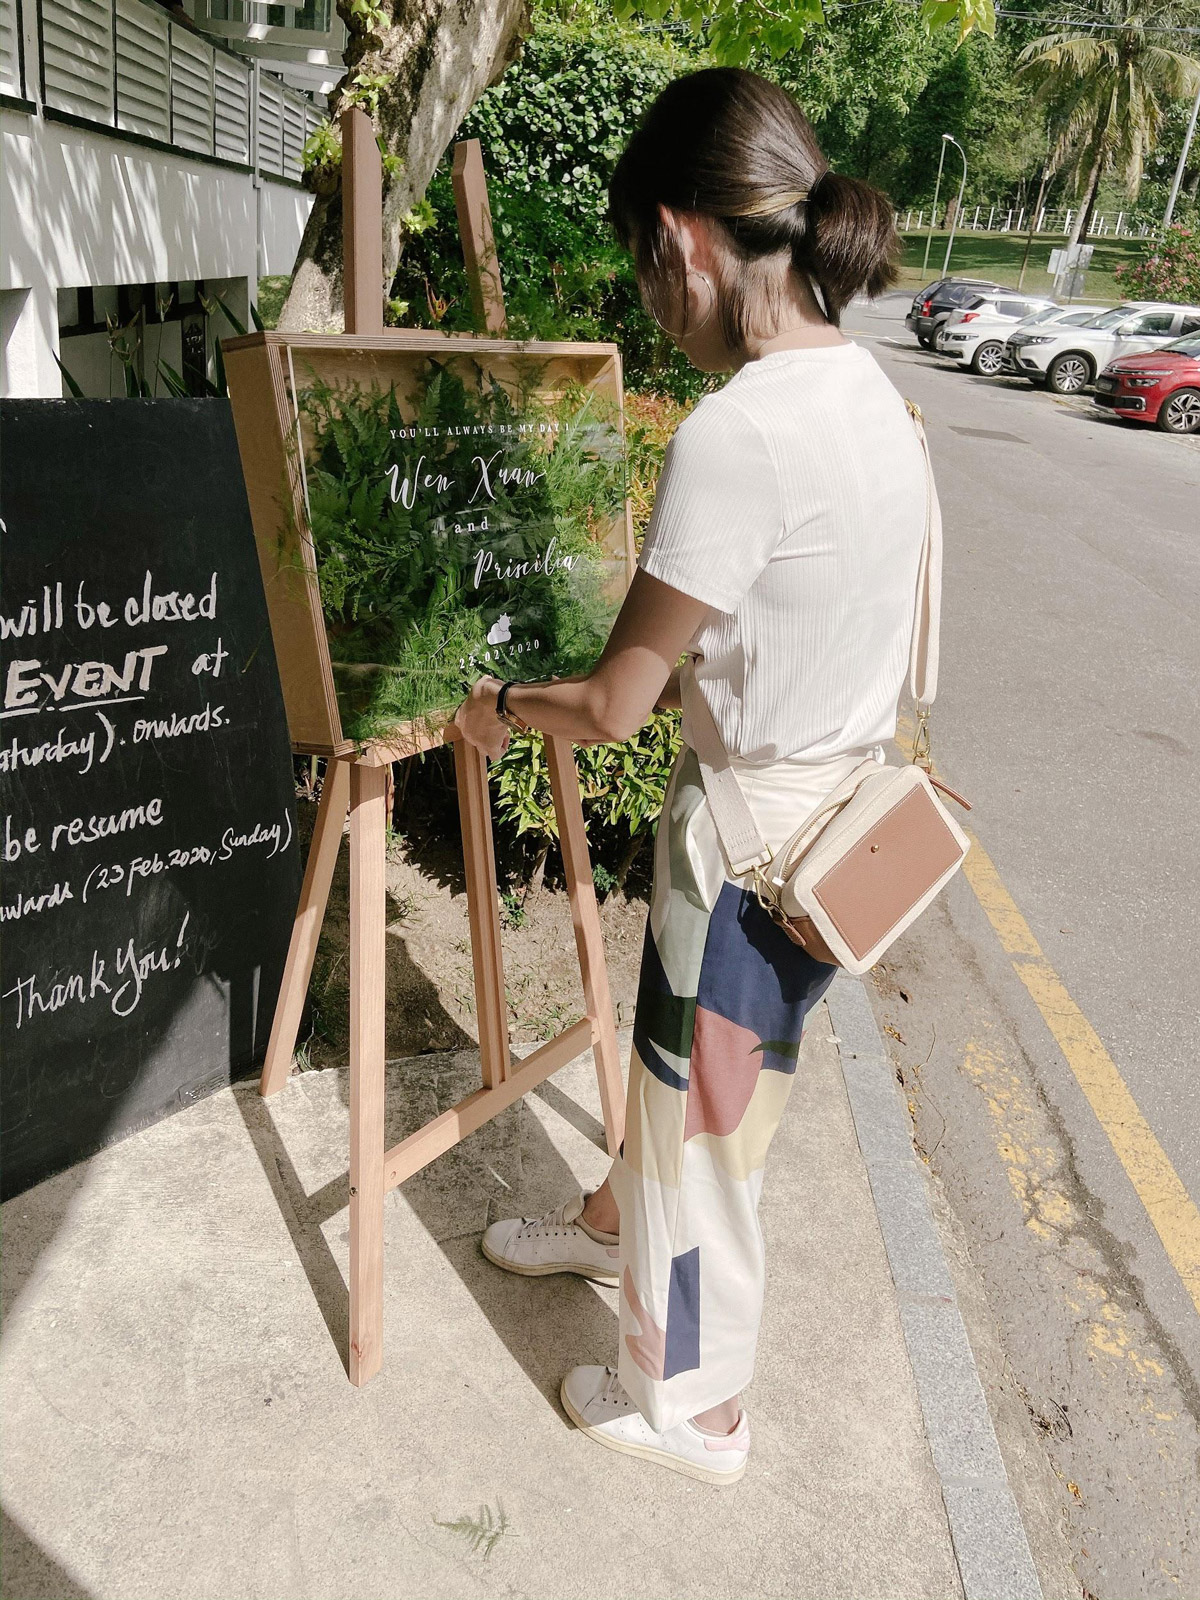 will be closed
EVENT at
aturday). onwards.
be resume
nwards (23 Feb. 2020, Sunday)
Thank You!
YOU'LL ALWAYS BE MY DAY 1
Wen Xuan
and
Priscilia
22.02.2020